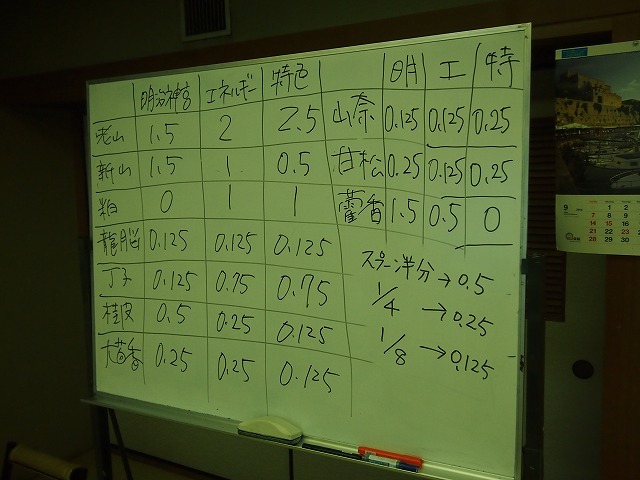 明治神宮 エネルギー 特色 明 エ 特
老山 1.5 2 2.5 山奈 0.125 0.125 0.25
新山 1.5 1 0.5 甘松 0.25 0.125 0.25
粗 0 1 1 藿香 1.5 0.5 0
龍脳 0.125 0.125 0.125
丁子 0.125 0.75 0.75
桂皮 0.5 0.25 0.125
大茴香 0.25 0.25 0.125
スプーン半分→0.5
1/4 →0.25
1/8 →0.125
9
1 2
7 8 9
14 15 16
21 22 23
28 29 30